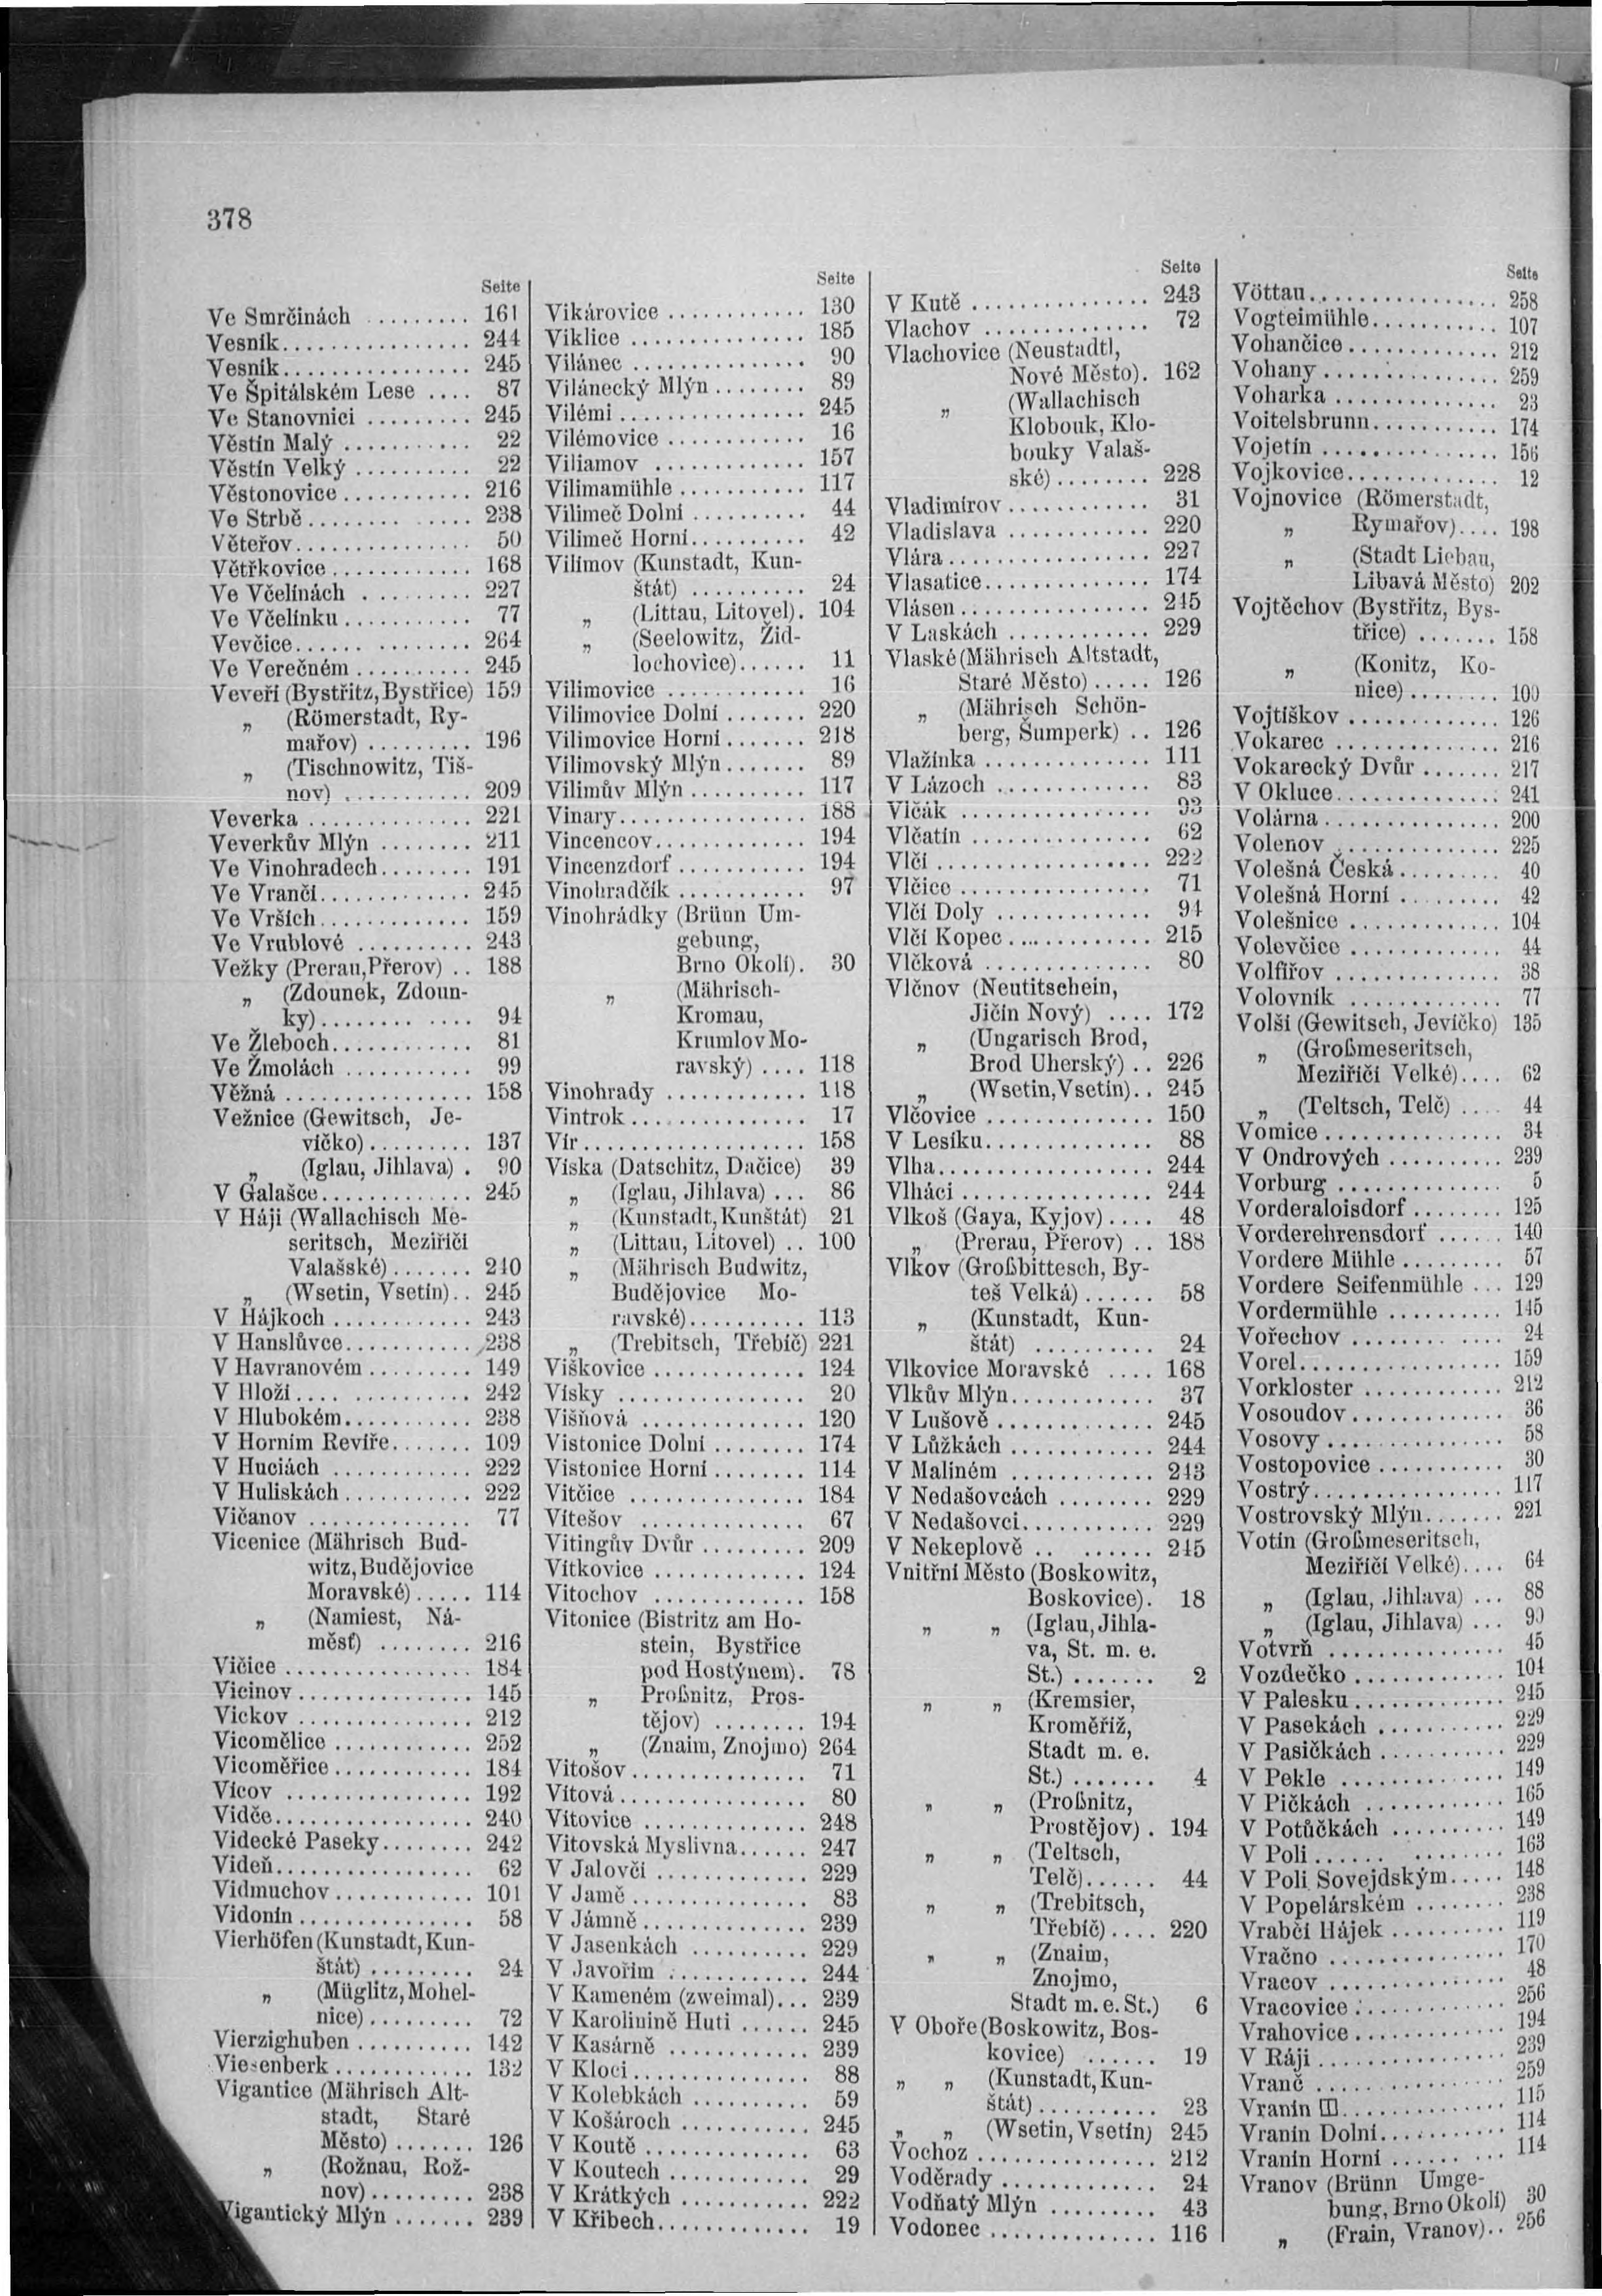 378
Seite
Ve Smrčinách ......... 161
Vesník................ 244
Vesník................ 245
Ve Špitálském Lese .... 87
Ve Stanovnici ......... 245
Věstín Malý ........... 22
Věstín Velký .......... 22
Věstonovice........... 216
Ve Strbě........ ..... 238
Věteřov............... 50
Větřkovice............ 168
Ve Včelínách .......... 227
Ve Včelínku........... 77
Vevčice...... ........ 264
Ve Verečném .......... 245
Veveří (Bystřitz, Bystřice) 159
„ (Römerstadt, Ry-
mařov) ......... 196
„ (Tischnowitz, Tiš-
nov) ........... 209
Veverka .............. 221
Veverkův Mlýn ........ 211
Ve Vinohradech........ 191
Ve Vrančí............. 245
Ve Vrších............. 159
Ve Vrublové .......... 243
Vežky (Prerau, Přerov) .. 188
„ (Zdounek, Zdoun-
ky)...... ...... 94
Ve Žleboch............ 81
Ve Žmolách ........... 99
Věžná ................ 158
Vežnice (Gewitsch, Je-
víčko)......... 137
„ (Iglau, Jihlava) . 90
V Galašce............. 245
V Háji (Wallachisch Me-
seritsch, Meziříčí
Valašské)....... 240
„ (Wsetin, Vsetín).. 245
V Hájkoch ............ 243
V Hanslůvce........... 238
V Havranovém ......... 149
V Hloži.... .......... 242
V Hlubokém........... 238
V Horním Revíře....... 109
V Huciách ............ 222
V Huliskách........... 222
Vičanov .............. 77
Vicenice (Mährisch Bud-
witz, Budějovice
Moravské)..... 114
„ (Namiest, Ná-
měsť) ........ 216
Vičice ................ 184
Vicinov............... 145
Vickov ............... 212
Vicomělice ............ 252
Vicoměřice............ 184
Vícov ................ 192
Vidče................. 240
Videcké Paseky........ 242
Videň................. 62
Vidmuchov............ 101
Vidonín............... 58
Vierhöfen (Kunstadt, Kun-
štát)......... 24
„ (Müglitz, Mohel-
nice)......... 72
Vierzighuben .......... 142
Viesenberk............ 132
Vigantice (Mährisch Alt-
stadt, Staré
Město) ....... 126
„ (Rožnau, Rož-
nov)......... 238
Vigantický Mlýn ....... 239
Seite
Vikárovice ............ 130
Viklice ............... 185
Vilánec ............... 90
Vilánecký Mlýn........ 89
Vilémi................ 245
Vilémovice ............ 16
Viliamov ............. 157
Vilimamühle........... 117
Vilimeč Dolní .......... 44
Vilimeč Horní.......... 42
Vilímov (Kunstadt, Kun-
štát) .......... 24
„ (Littau, Litovel). 104
„ (Seelowitz, Žid-
lochovice)...... 11
Vilimovice ............ 16
Vilimovice Dolní ....... 220
Vilimovice Horní....... 218
Vilimovský Mlýn....... 89
Vilimův Mlýn .......... 117
Vinary................ 188
Vincencov............. 194
Vincenzdorf ........... 194
Vinohradčík ........... 97
Vinohrádky (Brünn Um-
gebung,
Brno Okolí). 30
„ (Mährisch-
Kromau,
Krumlov Mo-
ravský) .... 118
Vinohrady ............ 118
Vintrok............... 17
Vír................... 158
Víska (Datschitz, Dačice) 39
„ (Iglau, Jihlava) ... 86
„ (Kunstadt, Kunštát) 21
„ (Littau, Litovel) .. 100
„ (Mährisch Budwitz,
Budějovice Mo-
ravské).......... 113
„ (Trebitsch, Třebíč) 221
Viškovice ............. 124
Vísky ................ 20
Višňová .............. 120
Vistonice Dolní ........ 174
Vistonice Horní........ 114
Vitčice ............... 184
Vítešov .............. 67
Vitingův Dvůr ......... 209
Vítkovice ............. 124
Vitochov ............. 158
Vitonice (Bistritz am Ho-
stein, Bystřice
pod Hostýnem). 78
„ Proßnitz, Pros-
tějov) ........ 194
„ (Znaim, Znojmo) 264
Vitošov............... 71
Vítová................ 80
Vítovice .............. 248
Vitovská Myslivna...... 247
V Jalovčí ............. 229
V Jamě............... 83
V Jámně.............. 239
V Jasenkách .......... 229
V Javořím ............ 244
V Kameném (zweimal)... 239
V Karolinině Huti ...... 245
V Kasárně ............ 239
V Kloci............... 88
V Kolebkách .......... 59
V Košároch ........... 245
V Koutě .............. 63
V Koutech ............ 29
V Krátkých ........... 222
V Křibech............. 19
Seite
V Kutě ................ 243
Vlachov ............... 72
Vlachovice (Neustadtl,
Nové Město). 162
„ (Wallachisch
Klobouk, Klo-
bouky Valaš-
ské)........ 228
Vladimírov ............. 31
Vladislava ............. 220
Vlára.................. 227
Vlasatice............... 174
Vlásen................. 245
V Laskách ............. 229
Vlaské (Mährisch Altstadt,
Staré Město)..... 126
„ (Mährisch Schön-
berg, Šumperk) .. 126
Vlažínka ............... 111
V Lázoch .............. 83
Vlčák ................. 93
Vlčatín ................ 62
Vlčí................... 222
Vlčice................. 71
Vlčí Doly .............. 94
Vlčí Kopec............. 215
Vlčková ............... 80
Vlčnov (Neutitschein,
Jičín Nový) .... 172
„ (Ungarisch Brod,
Brod Uherský) .. 226
„ (Wsetin, Vsetín).. 245
Vlčovice ............... 150
V Lesíku............... 88
Vlha................... 244
Vlháci ................. 244
Vlkoš (Gaya, Kyjov).... 48
„ (Prerau, Přerov) .. 188
Vlkov (Großbittesch, By-
teš Velká)...... 58
„ (Kunstadt, Kun-
štát) .......... 24
Vlkovice Moravské .... 168
Vlkův Mlýn............. 37
V Lušově .............. 245
V Lůžkách ............. 244
V Maliném ............. 243
V Nedašovcách ......... 229
V Nedašovci............ 229
V Nekeplově .. ........ 245
Vnitřní Město (Boskowitz,
Boskovice). 18
„ „ (Iglau, Jihla-
va, St. m. e.
St.) ....... 2
„ „ (Kremsier,
Kroměříž,
Stadt m. e.
St.) ....... 4
„ „ (Proßnitz,
Prostějov). 194
„ „ (Teltsch,
Telč)...... 44
„ „ (Trebitsch,
Třebíč).... 220
„ „ (Znaim,
Znojmo,
Stadt m. e. St.) 6
V Oboře (Boskowitz, Bos-
kovice) ...... 19
„ „ (Kunstadt, Kun-
štát).......... 23
„ „ (Wsetin, Vsetín) 245
Vochoz ................ 212
Voděrady .............. 24
Vodňatý Mlýn .......... 43
Vodonec ............... 116
Seite
Vöttau................. 258
Vogteimühle............ 107
Vohančice.............. 212
Vohany ................ 259
Voharka ............... 23
Voitelsbrunn............ 174
Vojetín ................ 156
Vojkovice.............. 12
Vojnovice (Römerstadt,
„ Rymařov).... 198
„ (Stadt Liebau,
Libavá Město) 202
Vojtěchov (Bystřitz, Bys-
třice) ....... 158
„ (Konitz, Ko-
nice)........ 100
Vojtíškov .............. 126
Vokarec ............... 216
Vokarecký Dvůr ....... 217
V Okluce............... 241
Volárna................ 200
Volenov ............... 225
Volešná Česká.......... 40
Volešná Horní .......... 42
Volešnice .............. 104
Volevčice .............. 44
Volfířov ............... 38
Volovník .............. 77
Volší (Gewitsch, Jevíčko) 135
„ (Großmeseritsch,
Meziříčí Velké).... 62
„ (Teltsch, Telč) .... 44
Vomice................ 34
V Ondrových .......... 239
Vorburg ............... 5
Vorderaloisdorf ........ 125
Vorderehrensdorf ...... 140
Vordere Mühle ......... 57
Vordere Seifenmühle ... 129
Vordermühle .......... 145
Vořechov ............. 24
Vorel.................. 159
Vorkloster ............ 212
Vosoudov............. 36
Vosovy................ 58
Vostopovice ........... 30
Vostrý................. 117
Vostrovský Mlýn....... 221
Votín (Großmeseritsch,
Meziříčí Velké).... 64
„ (Iglau, Jihlava) ... 88
„ (Iglau, Jihlava) ... 90
Votvrň ................ 45
Vozdečko ............. 104
V Palesku............. 245
V Pasekách ........... 229
V Pasičkách ........... 229
V Pekle ............... 149
V Pičkách ............. 165
V Potůčkách .......... 149
V Poli...... ......... 163
V Poli Sovejdským..... 148
V Popelárském ........ 238
Vrabčí Hájek .......... 119
Vračno ................ 170
Vracov ................ 48
Vracovice ............. 256
Vrahovice............. 194
V Ráji................. 239
Vranč ................. 259
Vranín ............... 115
Vranín Dolní........... 114
Vranín Horní .......... 114
Vranov (Brünn Umge-
bung, Brno Okolí) 30
„ (Frain, Vranov).. 256